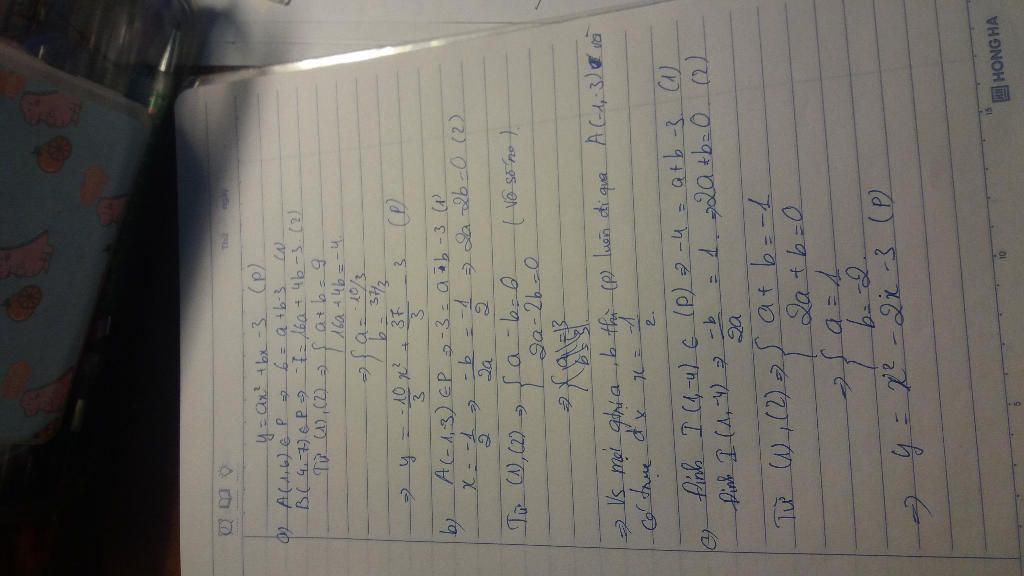 Thứ ngày
y = ax² + bx - 3 (P)
a) A(1,6) ∈ P ⇒ 6 = a + b - 3 (1)
B(4,-7) ∈ P ⇒ -7 = 16a + 4b - 3 (2)
Từ (1), (2) ⇒ { a + b = 9
16a + 4b = -4
⇒ { a = -10/3
b = 37/3
⇒ y = -10/3 x² + 37/3 - 3 (P)
b) A(-1,3) ∈ P ⇒ -3 = a - b - 3 (1)
x = -1/2 ⇒ -b/2a = -1/2 ⇒ 2a - 2b = 0 (2)
Từ (1), (2) ⇒ { a - b = 0
2a - 2b = 0 (vô số no).
⇒ Vs mọi gtrị a, b thì (P) luôn đi qua A(-1,3) và
có trục đ/x x = -1/2
c) Đỉnh I(1,-4) ∈ (P) ⇒ -4 = a + b - 3 (1)
Đỉnh I(1,-4) ⇒ -b/2a = 1 ⇒ 2a + b = 0 (2)
Từ (1), (2) ⇒ { a + b = -1
2a + b = 0
⇒ { a = 1
b = -2
⇒ y = x² - 2x - 3 (P)
HONG HA
5
10
15